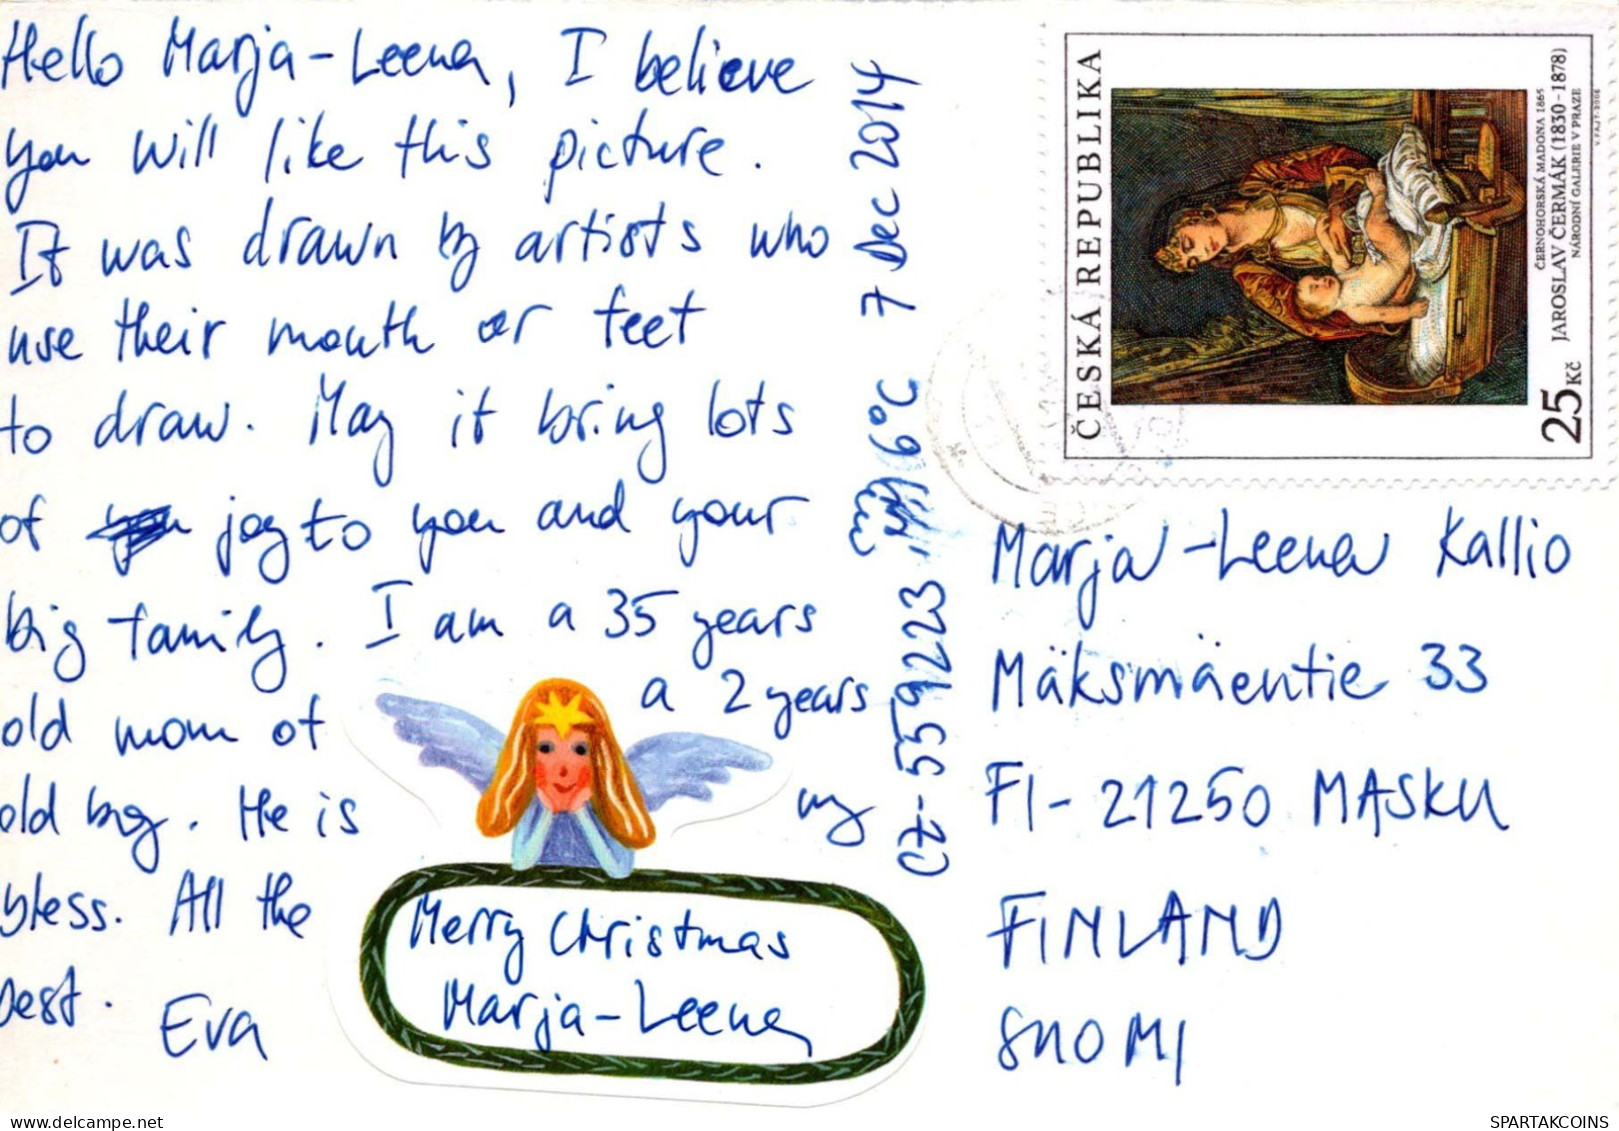 Hello Marja-Leena, I believe
you will like this picture.
It was drawn by artists who
use their mouth or feet
to draw. May it bring lots
of joy to you and your
big family. I am a 35 years
old mom of a 2 years
old boy. He is my
bless. All the
best. Eva
Merry Christmas
Marja-Leena
7 Dec 2014
6°C
CZ-559223
ČESKÁ REPUBLIKA
ČERNOHORSKÁ MADONA 1865
JAROSLAV ČERMÁK (1830-1878)
NÁRODNÍ GALERIE V PRAZE
V. FAJT-2008
25 Kč
Marja-Leena Kallio
Mäksmäentie 33
FI-21250 MASKU
FINLAND
SUOMI
www.delcampe.net
SPARTAKCOINS